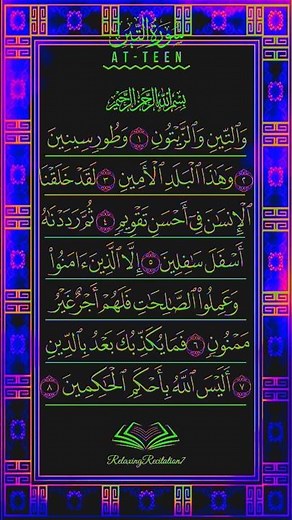 سورة التين
AT-TEEN
بِسْمِ ٱللَّهِ ٱلرَّحْمَٰنِ ٱلرَّحِيمِ
وَٱلتِّينِ وَٱلزَّيْتُونِ ١ وَطُورِ سِينِينَ
٢ وَهَٰذَا ٱلْبَلَدِ ٱلْأَمِينِ ٣ لَقَدْ خَلَقْنَا
ٱلْإِنسَٰنَ فِىٓ أَحْسَنِ تَقْوِيمٍ ٤ ثُمَّ رَدَدْنَٰهُ
أَسْفَلَ سَٰفِلِينَ ٥ إِلَّا ٱلَّذِينَ ءَامَنُوا۟
وَعَمِلُوا۟ ٱلصَّٰلِحَٰتِ فَلَهُمْ أَجْرٌ غَيْرُ
مَمْنُونٍ ٦ فَمَا يُكَذِّبُكَ بَعْدُ بِٱلدِّينِ
٧ أَلَيْسَ ٱللَّهُ بِأَحْكَمِ ٱلْحَٰكِمِينَ ٨
RelaxingRecitation7